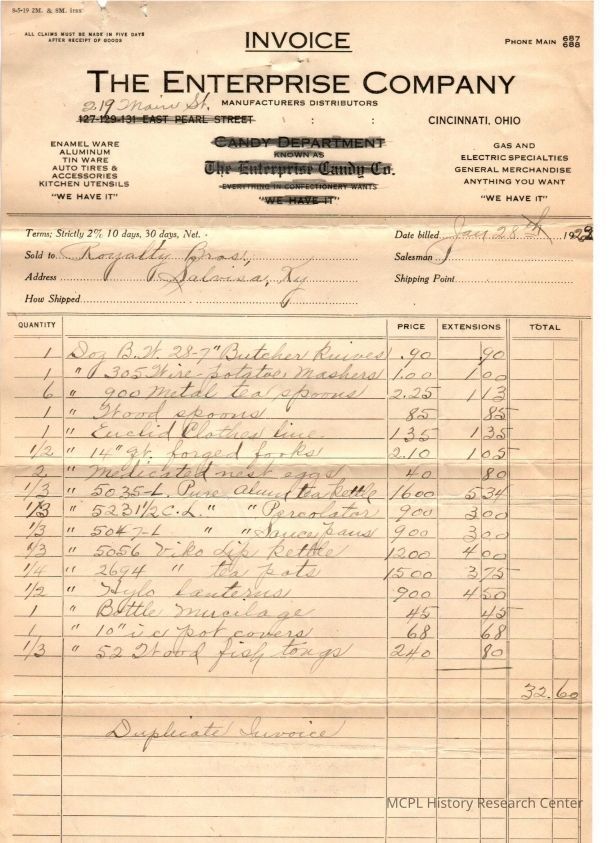 8-5-19 2M. & 8M. irex
ALL CLAIMS MUST BE MADE IN FIVE DAYS
AFTER RECEIPT OF GOODS
INVOICE
PHONE MAIN 687 688
THE ENTERPRISE COMPANY
219 Main St.
MANUFACTURERS DISTRIBUTORS
127-129-131 EAST PEARL STREET : : CINCINNATI, OHIO
ENAMEL WARE
ALUMINUM
TIN WARE
AUTO TIRES &
ACCESSORIES
KITCHEN UTENSILS
"WE HAVE IT"
CANDY DEPARTMENT
KNOWN AS
The Enterprise Candy Co.
EVERYTHING IN CONFECTIONERY WANTS
"WE HAVE IT"
GAS AND
ELECTRIC SPECIALTIES
GENERAL MERCHANDISE
ANYTHING YOU WANT
"WE HAVE IT"
Terms; Strictly 2% 10 days, 30 days, Net.
Date billed Jan 28th 1922
Sold to Royalty Bros,
Salesman
Address Salvisa, Ky
Shipping Point
How Shipped
QUANTITY PRICE EXTENSIONS TOTAL
1 Doz B.W. 28-7" Butcher knives .90 .90
1 " 305 Wire potatoe Mashers 1.00 1 00
6 " 900 Metal tea spoons 2.25 1 13
1 " Wood spoons 85 85
1 " Euclid Clothes line 1 35 1 35
1/2 " 14" forged forks 2.10 1 05
2 " Medicated nest eggs 40 80
1/3 " 5035-L. Pure Alum tea kettle 16 00 5 34
1/3 " 523 1/2 C.L. " " Percolator 9 00 3 00
1/3 " 5047-L " " Sauce pans 9 00 3 00
1/3 " 5056 Viko Lip kettle 12 00 4 00
1/4 " 2694 " tea pots 15 00 3 75
1/2 " Hylo lanterns 9 00 4 50
1 " Bottle Mucilage 45 45
1 " 10" i c pot covers 68 68
1/3 " 52 Wood fish tongs 2 40 80
32.60
Duplicate Invoice
MCPL History Research Center